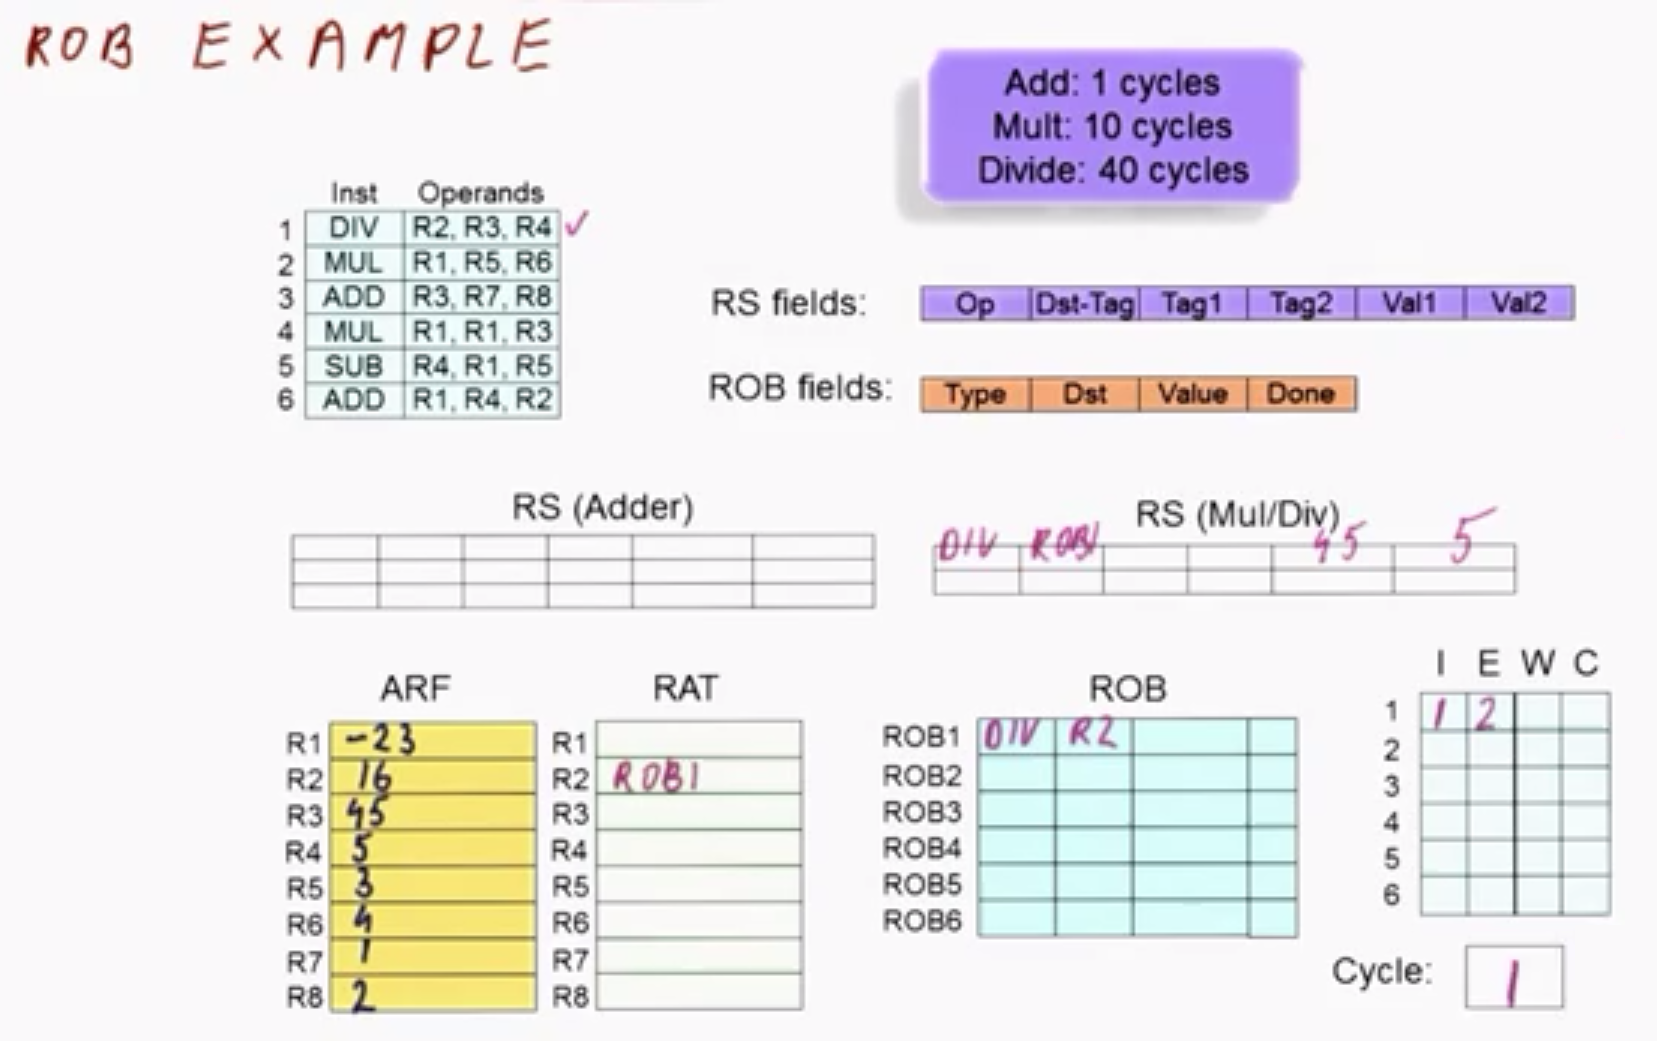 ROB EXAMPLE
Add: 1 cycles
Mult: 10 cycles
Divide: 40 cycles
Inst Operands
1 DIV R2, R3, R4 ✓
2 MUL R1, R5, R6
3 ADD R3, R7, R8
4 MUL R1, R1, R3
5 SUB R4, R1, R5
6 ADD R1, R4, R2
RS fields: Op Dst-Tag Tag1 Tag2 Val1 Val2
ROB fields: Type Dst Value Done
RS (Adder)
RS (Mul/Div)
DIV ROB1 45 5
ARF
R1 -23
R2 16
R3 45
R4 5
R5 3
R6 4
R7 1
R8 2
RAT
R1
R2 ROB1
R3
R4
R5
R6
R7
R8
ROB
ROB1 DIV R2
ROB2
ROB3
ROB4
ROB5
ROB6
I E W C
1 1 2
2
3
4
5
6
Cycle: 1